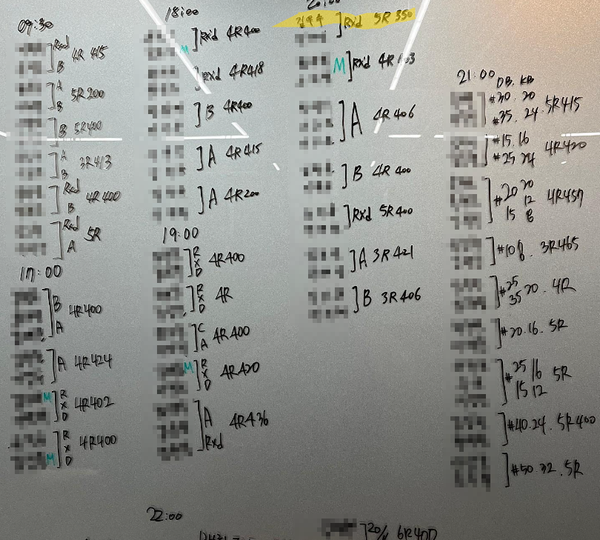 09:30
Rxd
B
4R 415
A
B
5R 200
B 5R400
A
B
3R413
Rxd
B
4R 400
Rxd
A
5R
17:00
B
A
4R400
A 4R424
M R
X
D
4R402
R
X
D
M
4R400
18:00
Rx'd 4R400
M
Rx'd 4R418
B 4R400
A 4R415
A 4R200
19:00
R
X
D
4R400
R
X
D
4R
C
A
4R400
M R
X
D
4R420
A
Rxd
4R436
22:00
Rx'd 5R 350
M Rx'd
A 4R406
B 4R 400
Rx'd 5R400
A 3R421
B 3R 406
21:00
DB. KB
#30. 20
#35. 24. 5R415
#15. 16
#25 24 4R420
#20 20
12
15 8
4R457
3R465
#25
35 20. 4R
#20.16. 5R
#25 16
15 12
5R
#40.24. 5R400
#50.32. 5R
6R400